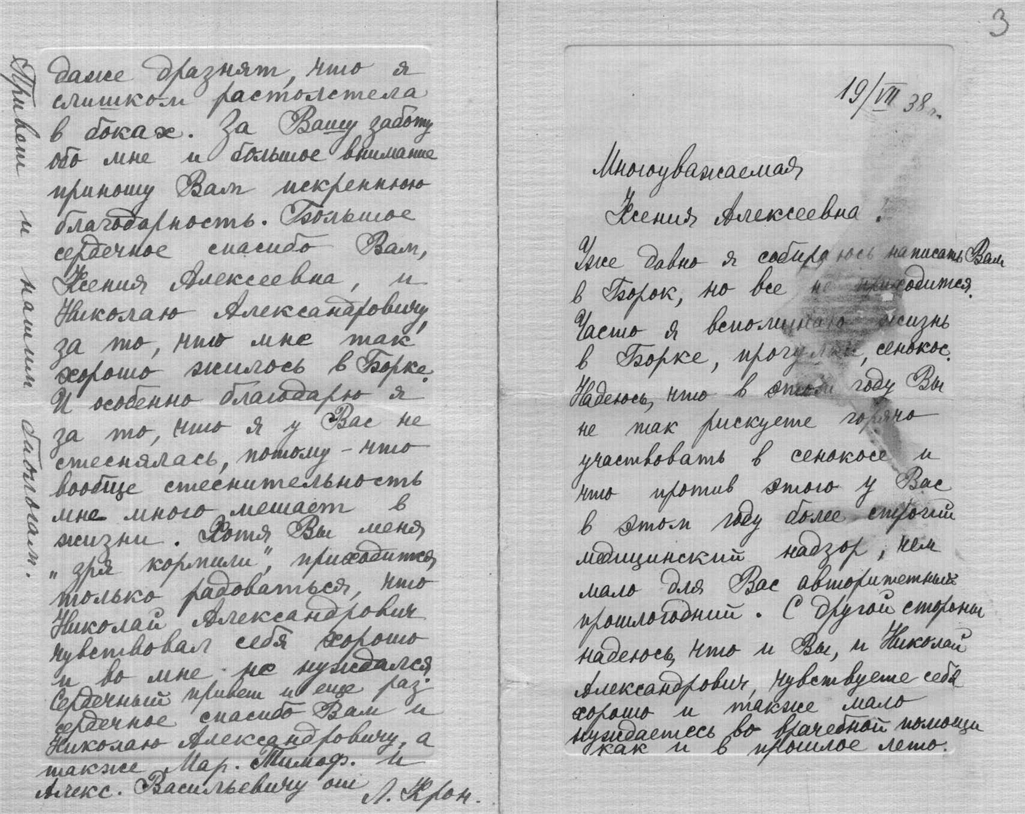 3
19/VII 38 г.
Многоуважаемая
Ксения Алексеевна!
Уже давно я собираюсь написать Вам
в Борок, но все не приходится.
Часто я вспоминаю жизнь
в Борке, прогулки, сенокос.
Надеюсь, что в этом году Вы
не так рискуете горячо
участвовать в сенокосе и
что против этого у Вас
в этом году более строгий
медицинский надзор, чем
мало для Вас авторитетный
прошлогодний. С другой стороны
надеюсь, что и Вы, и Николай
Александрович, чувствуете себя
хорошо и также мало
нуждаетесь во врачебной помощи
как и в прошлое лето.
даже дразнят, что я
слишком растолстела
в боках. За Вашу заботу
обо мне и большое внимание
приношу Вам искреннюю
благодарность. Большое
сердечное спасибо Вам,
Ксения Алексеевна, и
Николаю Александровичу,
за то, что мне так
хорошо жилось в Борке.
И особенно благодарю я
за то, что я у Вас не
стеснялась, потому-что
вообще стеснительность
мне много мешает в
жизни. Хотя Вы меня
„зря кормили", приходится
только радоваться, что
Николай Александрович
чувствовал себя хорошо
и во мне не нуждался.
Сердечный привет и еще раз
сердечное спасибо Вам и
Николаю Александровичу, а
также Мар. Тимоф. и
Алекс. Васильевичу от
Л. Крон.
Привет и нашим биологам.